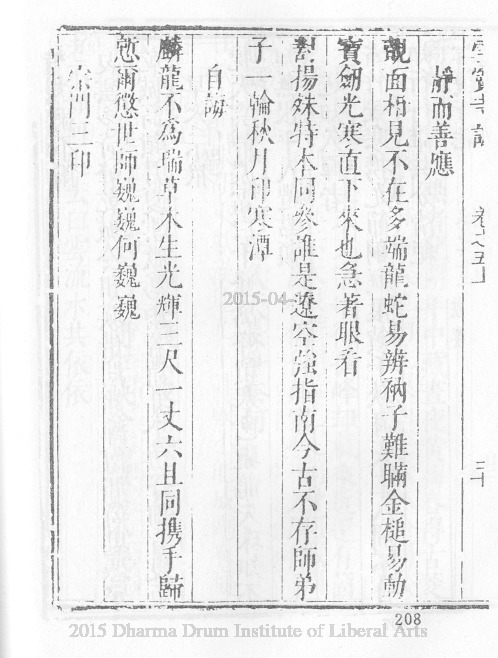 靜而善應
覿面相見不在多端龍蛇易辨衲子難瞞金槌影動
寳劒光寒直下來也急著眼看
揚殊特本同參誰是遼空強指南今古不存師弟
子一輪秋月印寒潭
自誨
麟龍不為瑞草木生光輝三尺一丈六且同携手歸
慙爾憨世師巍巍何巍巍
宗門三印
卷之五
三十
2015-04-
208
2015 Dharma Drum Institute of Liberal Arts